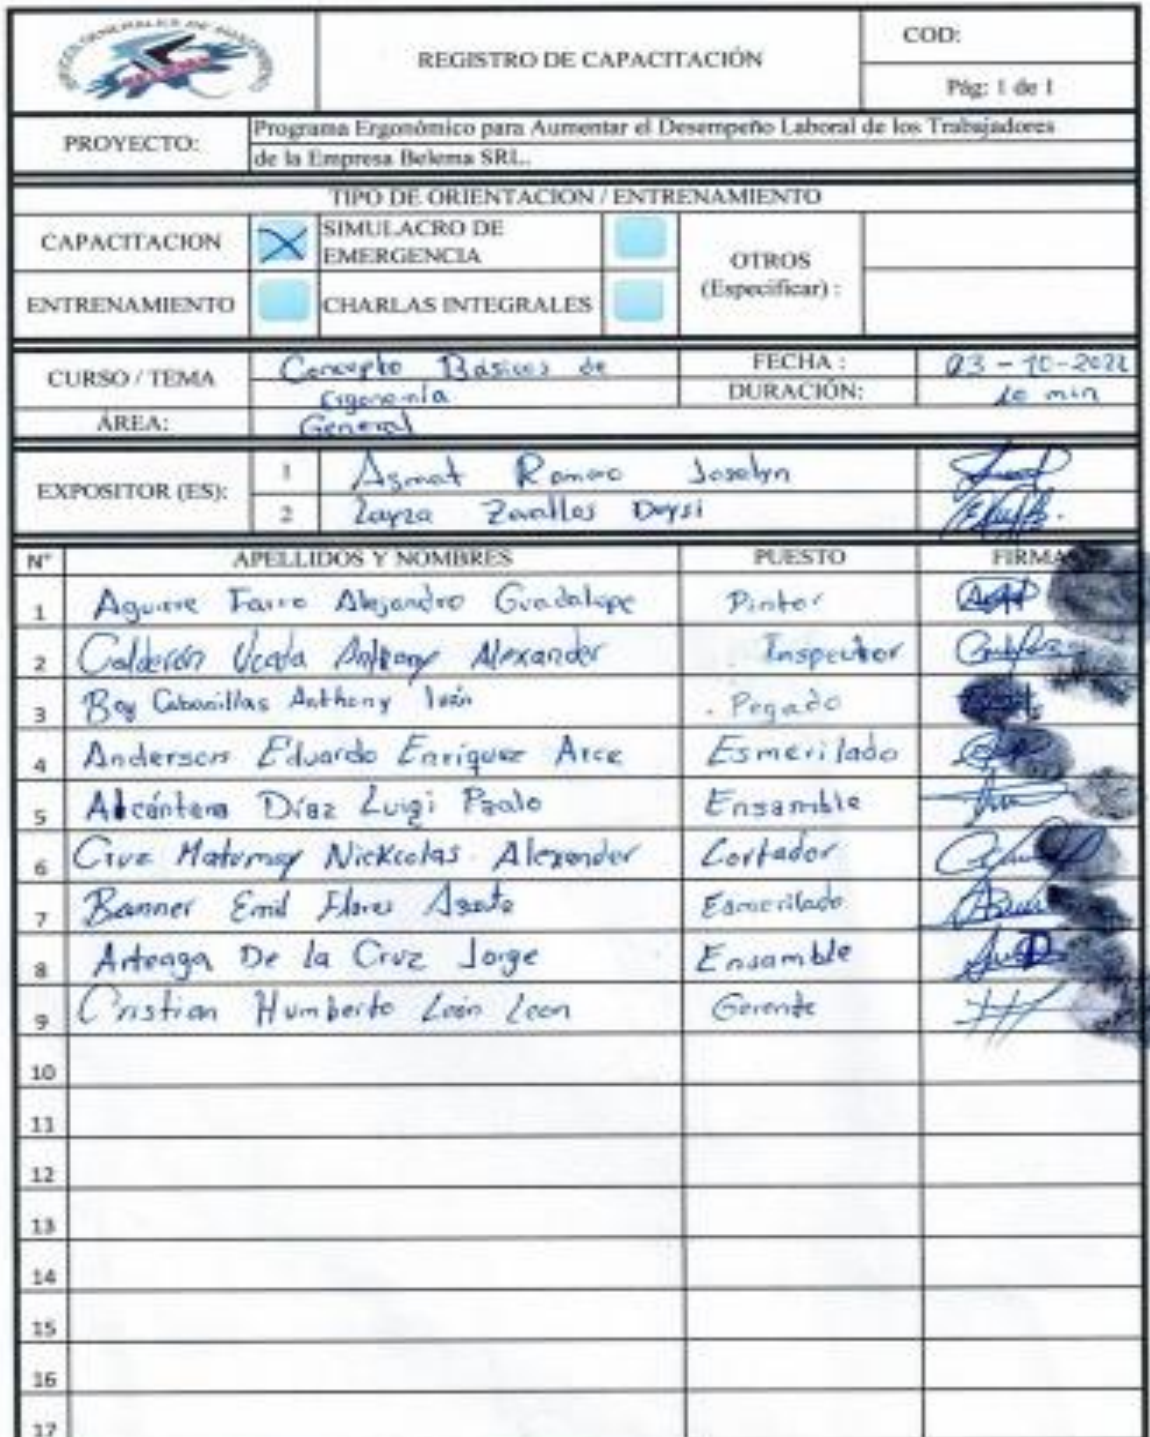 SERVICIOS GENERALES DE
BELEMA
REGISTRO DE CAPACITACIÓN
COD:
Pág: 1 de 1
PROYECTO:
Programa Ergonómico para Aumentar el Desempeño Laboral de los Trabajadores
de la Empresa Belema SRL.
TIPO DE ORIENTACION / ENTRENAMIENTO
CAPACITACION
SIMULACRO DE
EMERGENCIA
OTROS
(Especificar) :
ENTRENAMIENTO
CHARLAS INTEGRALES
CURSO / TEMA
Concepto Básicos de
Ergonomía
FECHA :
03-10-2022
DURACIÓN:
10 min
ÁREA:
General
EXPOSITOR (ES):
1 Asmat Romero Joselyn
2 Zavallos Deysi
N° APELLIDOS Y NOMBRES PUESTO FIRMA
1 Aguirre Farro Alejandro Guadalupe Pintor
2 Calderón Anthony Alexander Inspector
3 Boy Cabanillas Anthony Iván Pegado
4 Anderson Eduardo Enríquez Arce Esmerilado
5 Alcántara Díaz Luigi Paolo Ensamble
6 Cruz Nickcolas Alexander Cortador
7 Banner Emil Flores Esmerilado
8 Arteaga De la Cruz Jorge Ensamble
9 Cristian Humberto León Leon Gerente
10
11
12
13
14
15
16
17